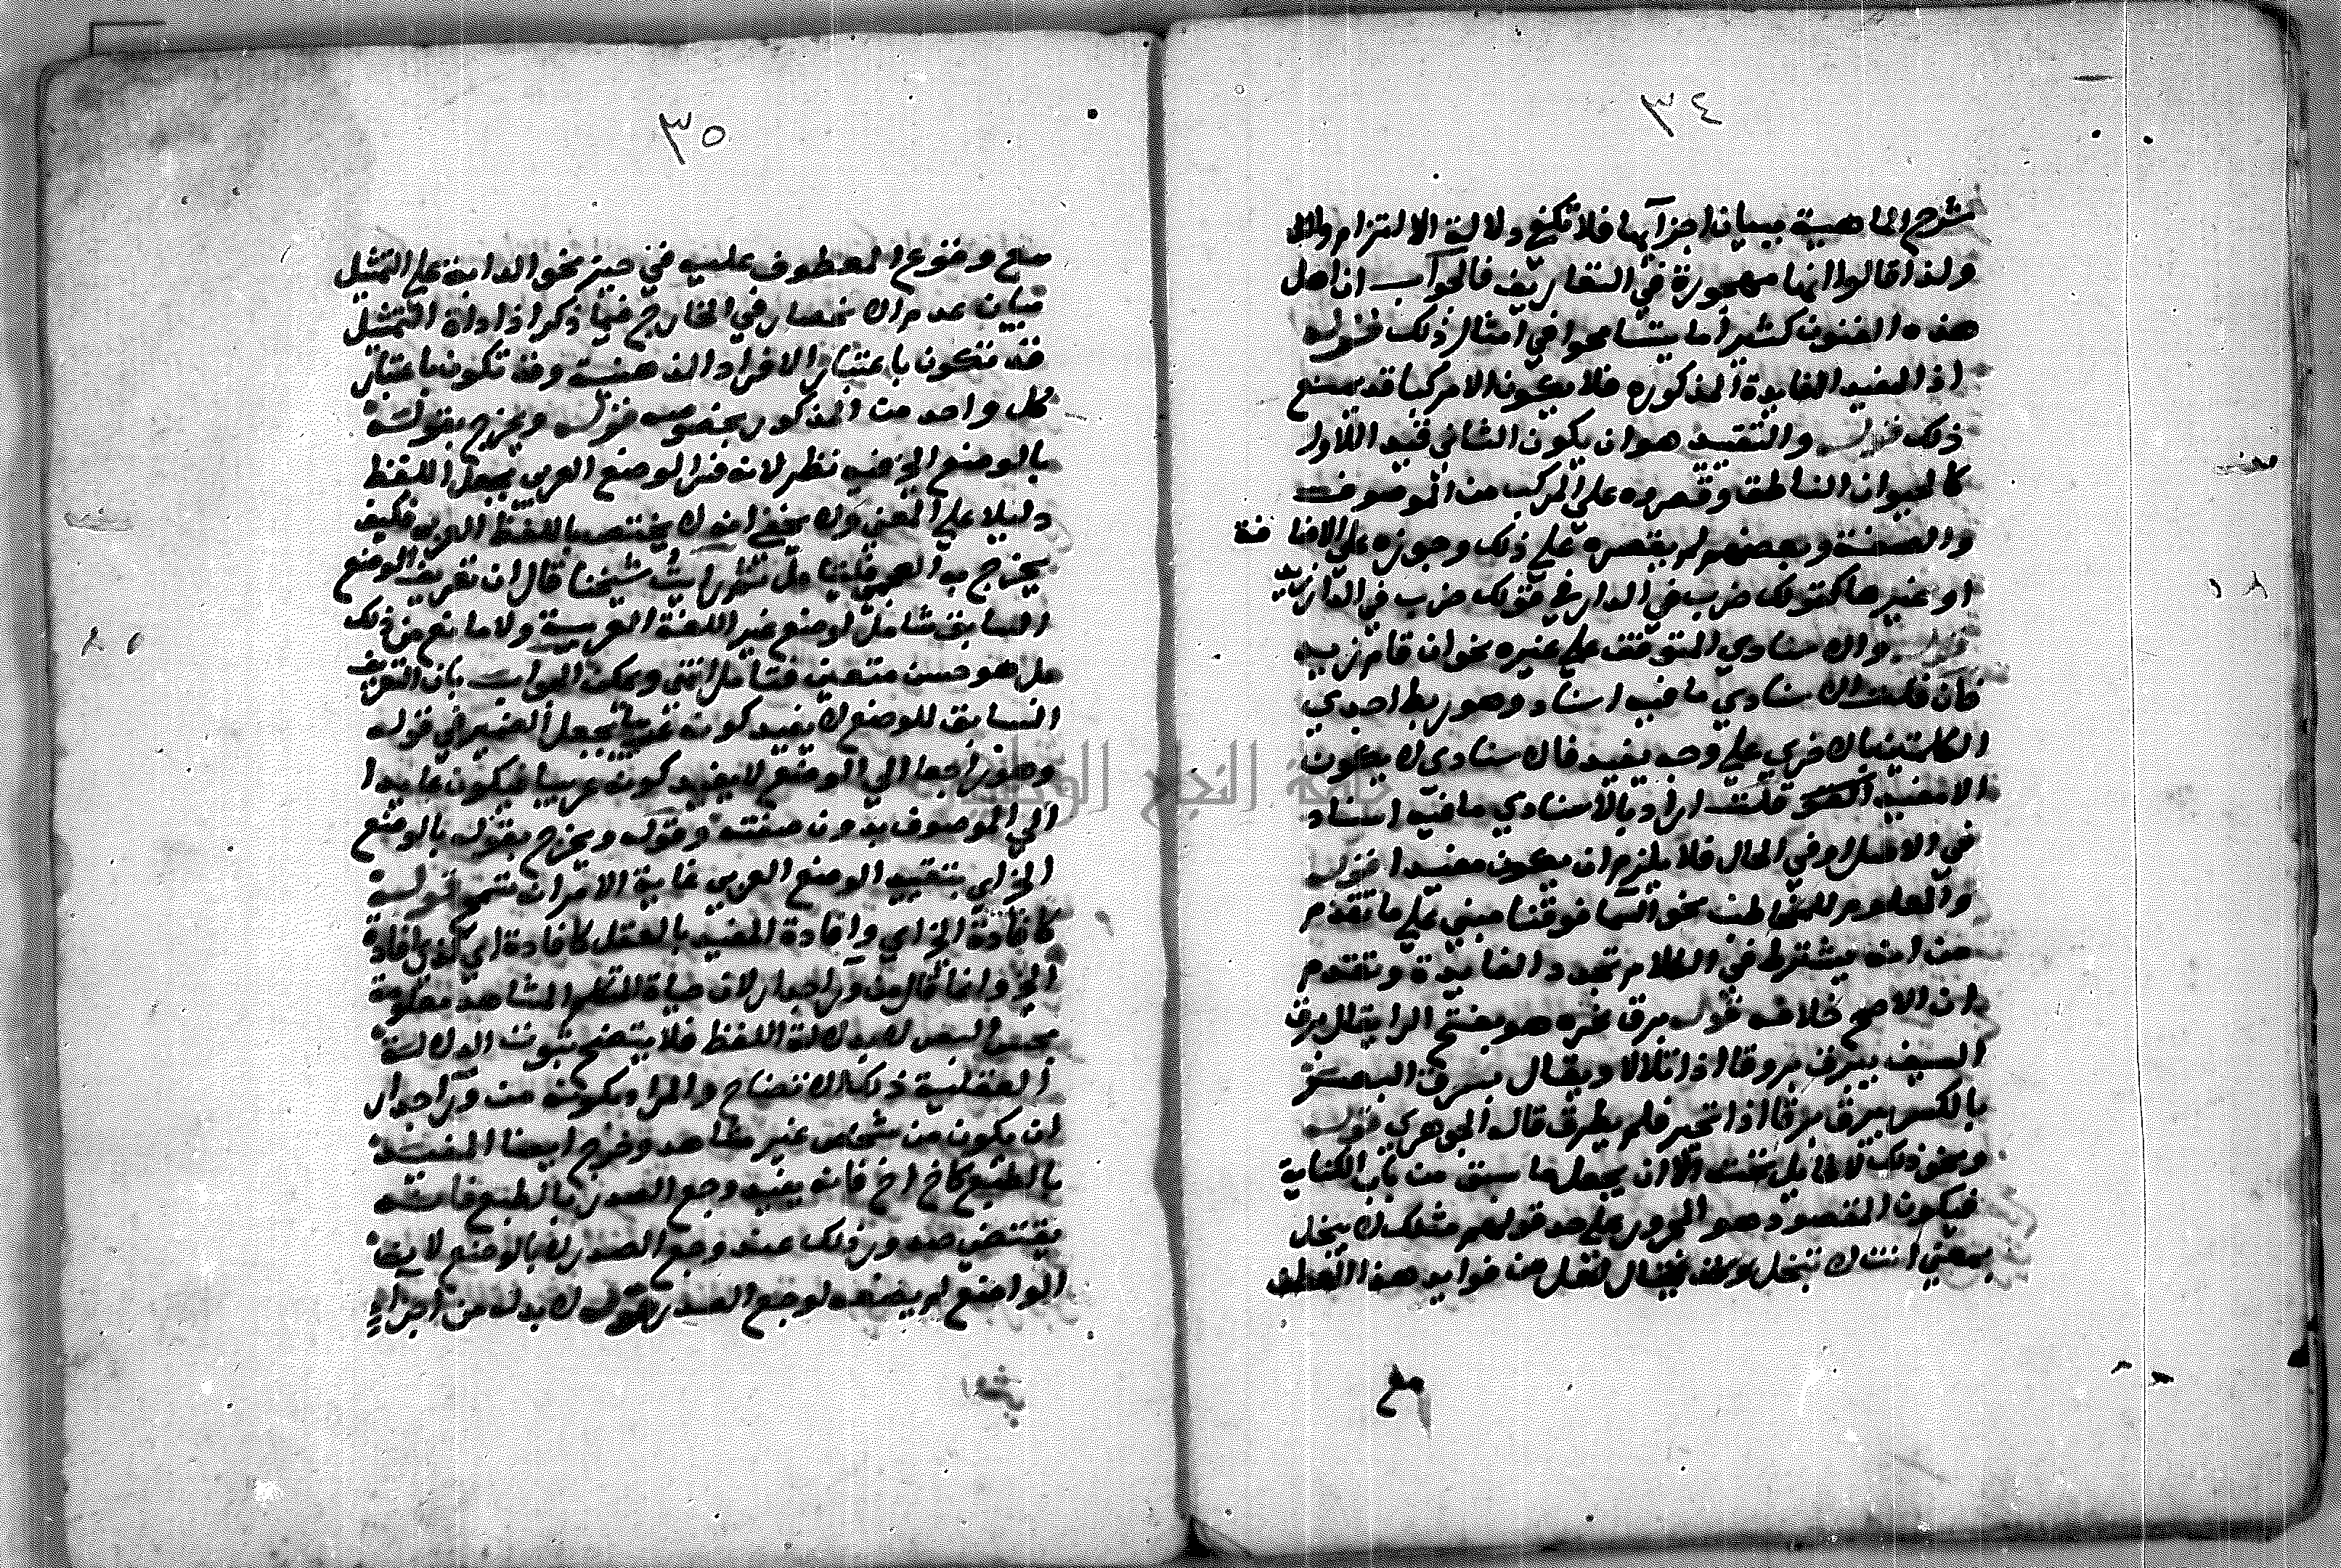 ٣٤
شرح الماهية ببيان اجزآيها فلا تكفي دلالة الالتزام والا
ولذا قالوا انها مهجورة في التعاريف فالجواب ان اهل
هذه الفنون كثيرا ما يتسامحوا في امثال ذلك قوله
اذ المفيد الفايدة المذكوره فلا يكون الا مركبا قد يمنع
ذلك قوله والتقييد هو ان يكون الثاني قيد اللاول
كالحيوان الناطق وقصره علي المركب من الموصوف
والصفة وبعضهم لم يقصره علي ذلك وجوزه علي الاضافة
او غيرها كقولك ضرب في الدار في قولك ضرب في الدار زيد
قوله والاسنادي المتوقف علي غيره نحو ان قام زيد
فان قلت الاسنادي ما فيه اسناد وهو ربط احدي
الكلمتين بالاخري علي وجه يفيد فالاسنادي لا يكون
الا مفيد قلت اراد بالاسنادي ما فيه اسناد
في الاصل او في الحال فلا يلزم ان يكون مفيدا قوله
والمعلوم للمخاطب نحو السما فوقنا مبني علي ما تقدم
من انه يشترط في الكلام تجدد الفايدة وتقدم
ان الاصح خلافه قوله برق نحره هو بفتح الرا يقال برق
السيف يبرق بروقا اذا تلالا ويقال برق البصر
بالكسر يبرق برقا اذا تحير فلم يطرف قاله الجوهري قوله
ونحو ذلك لا طايل تحته الا ان يجعل ما سبق من باب الكناية
فيكون المقصود هو المجرور علي حد قولهم مثلك لا يبخل
بمعني انت لا تبخل من فوايد هذا
٣٥
مع وقوع المعطوف عليه في حيز نحو الدالة علي التمثيل
ببيان عدم الانحصار في الخارج فيما ذكر اذ اداة التمثيل
قد تكون باعتبار الافراد الذهنية وقد تكون باعتبار
كل واحد من المذكور بخصوصه قوله ويخرج بقوله
بالوضع الخ فيه نظر لانه فسر الوضع العربي بجعل اللفظ
دليلا علي المعني ولا يخفي انه لا يختص باللفظ العربي فكيف
يخرج به العجمي فليتامل ثم رايت شيخنا قال ان تعريف الوضع
السابق شامل لوضع غير اللغة العربية ولا مانع من ذلك
بل هو حسن متعين فتامل انتهي ويمكن الجواب بان التعريف
السابق للوضع لا يفيد كونه عربيا بجعل الضمير في قوله
وهو راجعا الي الوضع لا بقيد كونه عربيا فيكون عايدا
الي الموصوف بدون صفته وقوله ويخرج بقوله بالوضع
الخ اي بتقييد الوضع بالعربي غاية الامر ان
كافادة الخ اي وافادة المفيد بالعقل كافادة اي كذي افادة
الخ وانما قال من ورآ جدار لان حياة المتكلم المشاهد معلومة
بحس البصر لا بدلالة اللفظ فلا يتضح ثبوت الدلالة
العقلية ذلك الاتضاح والمراد بكونه من ورآ جدار
ان يكون من شخص غير مشاهد وخرج ايضا المفيد
بالطبع كاخ اخ فانه يفيد وجع الصدر بالطبع فانه
يقتضي صدور ذلك عند وجع الصدر لا بالوضع لان
الواضع لم يضعه لوجع الصدر قوله لا بد له من اجزاء